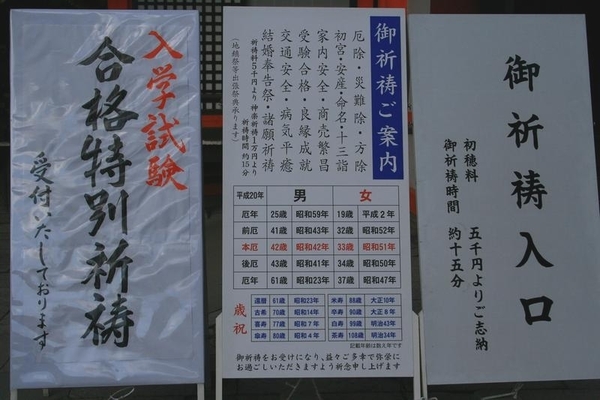 入学試験
合格特別祈祷
受付いたしております
御祈祷ご案内
厄除・災難除・方除
初宮・安産・命名・十三詣
家内安全・商売繁昌
受験合格・良縁成就
交通安全・病気平癒
結婚奉告祭・諸願祈祷
祈祷料5千円より 神楽祈祷1万円より
祈祷時間 約15分
(地鎮祭等出張祭典承ります)
平成20年 男 女
厄年 25歳 昭和59年 19歳 平成2年
前厄 41歳 昭和43年 32歳 昭和52年
本厄 42歳 昭和42年 33歳 昭和51年
後厄 43歳 昭和41年 34歳 昭和50年
厄年 61歳 昭和23年 37歳 昭和47年
歳祝
還暦 61歳 昭和23年 米寿 88歳 大正10年
古希 70歳 昭和14年 卒寿 90歳 大正8年
喜寿 77歳 昭和7年 白寿 99歳 明治43年
傘寿 80歳 昭和4年 茶寿 108歳 明治34年
記載年齢は数え年です
御祈祷をお受けになり、益々ご多幸で弥栄に
お過ごしいただきますよう祈念申し上げます
御祈祷入口
初穂料 五千円よりご志納
御祈祷時間 約十五分